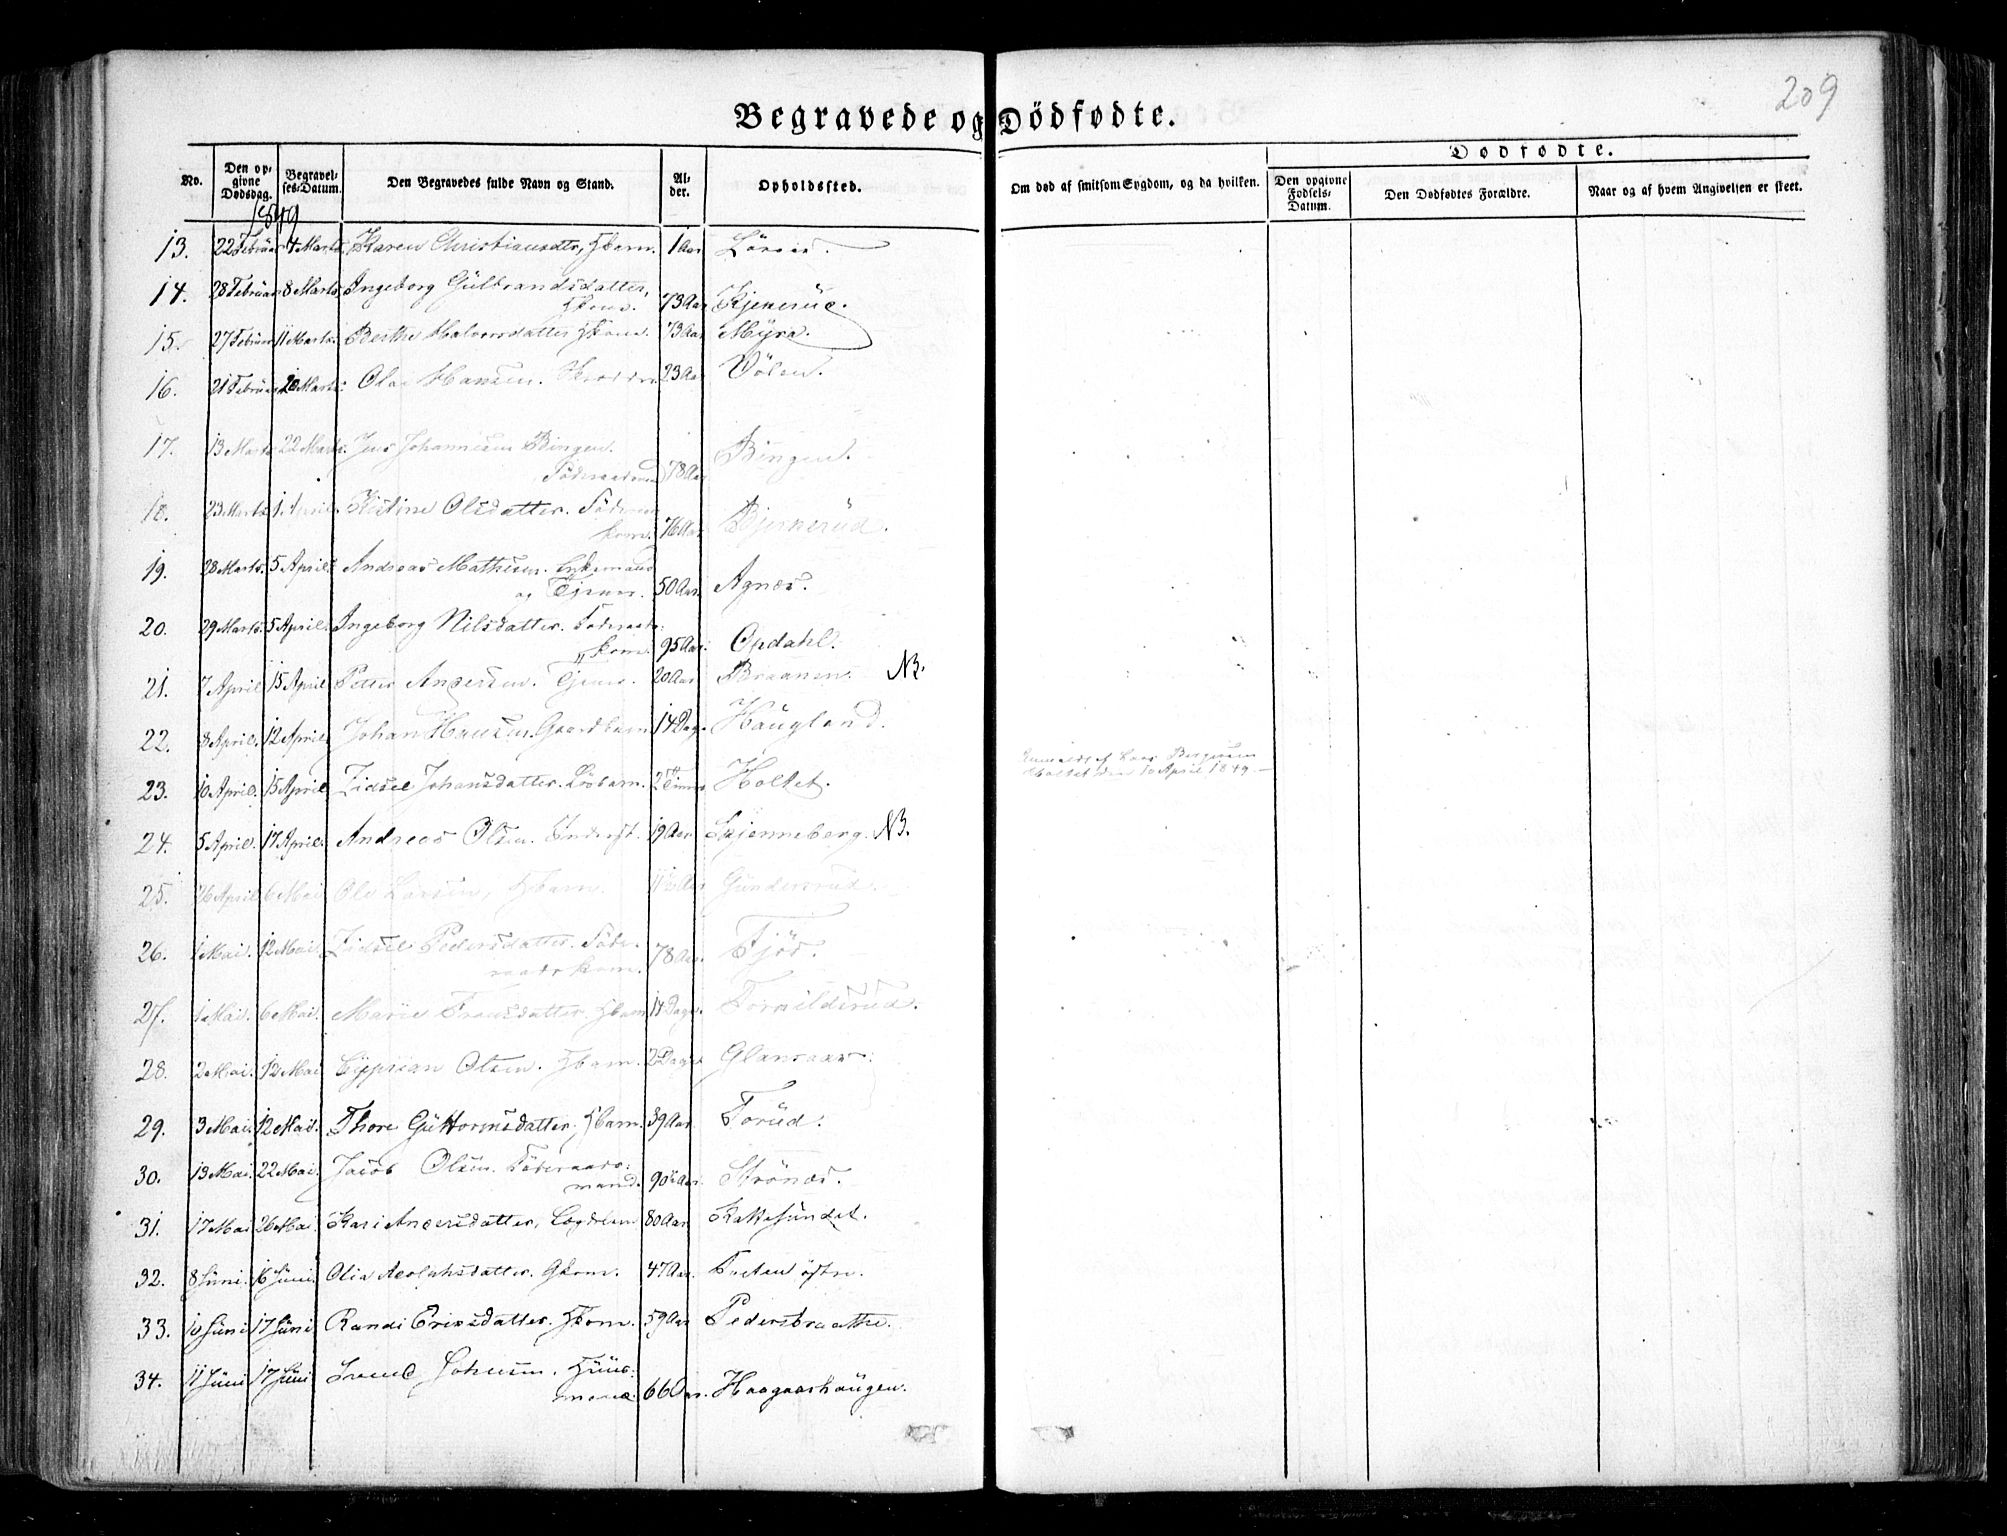 209
Begravede og Dödfødte.
No. Den opgivne Dødsdag. Begravelses-Datum. Den Begravedes fulde Navn og Stand. Alder. Opholdssted. Om død af smitsom Sygdom, og da hvilken. Dødfødte.
Den opgivne Fødsels-Datum. Den Dødfødtes Forældre. Naar og af hvem Angivelsen er skeet.
1849
13. 22 Februar 4 Marts. Karen Christiansdtr, Hbarn. 1 Aar
14. 28 Februar 8 Marts. Ingeborg Gulbrandsdatter,
Hkone. 73 Aar
15. 27 Februar 11 Marts. Berthe Halvorsdatter Hkone. 73 Aar Myra.
16. 21 Februar Marts. Ole Hansen. 23 Aar Völen.
17. 13 Marts 22 Marts. Jens Johannesen Bingen.
Föderaadsmand 78 Aar Bingen.
18. 23 Marts 1. April. Kistine Olsdatter. Föderaads
kone. 76 Aar Bjerkerüd.
19. 28 Marts. 5 April. Andreas Mathisen. Enkemand
og Tjener. 50 Aar. Agnes.
20. 29 Marts. 5 April. Ingeborg Nilsdatter. Föderaads-
kone. 95 Aar. Opdahl.
21. 7 April 15 April Petter Andersen. Tjener. 20 Aar Braanen. NB.
22. 8 April. 12 April. Johan Hansen. Gaardbarn 14 Dage. Haugland.
23. 10 April. 15 April. Zidsel Johansdatter. 2 Timer Holtet. Anmeldt af Lars Bergersen
Holtet den 10 April 1849.
24. 5 April. 17 April. Andreas Olsen. 19 Aar Skjenneberg. NB.
25. 26 April 6 Mai Ole Larsen, Hbarn. Gundersrud.
26. 1 Mai. 12 Mai. Zidsel Pedersdatter. Föde-
raadskone. 78 Aar. Fjös.
27. 1 Mai. 6 Mai. Marie Fransdatter. Hbarn 14 Dage. Tornildsrud.
28. 2 Mai. 12 Mai Cyprian Olsen. Hbarn. 2 Dage
29. 3 Mai. 12 Mai. Thore Guttormsdatter, Hbarn. 39 Aar Torüd.
30. 13 Mai. 22 Mai. Jacob Olsen. Föderaads-
mand. 90 Aar. Strönes.
31. 17 Mai 26 Mai. Kari Andersdatter, Lægdslem 80 Aar Kattesundet.
32. 8 Juni. 16 Juni. Olia Adolphsdatter. Gkone. 47 Aar. östre.
33. 10 Juni 17 Juni Randi Eriksdatter. Hkone. 59 Aar Pedersbraathe.
34. 11 Juni 17 Juni Johnsen. Huus-
mand. 66 Aar. Haagaashaugen.